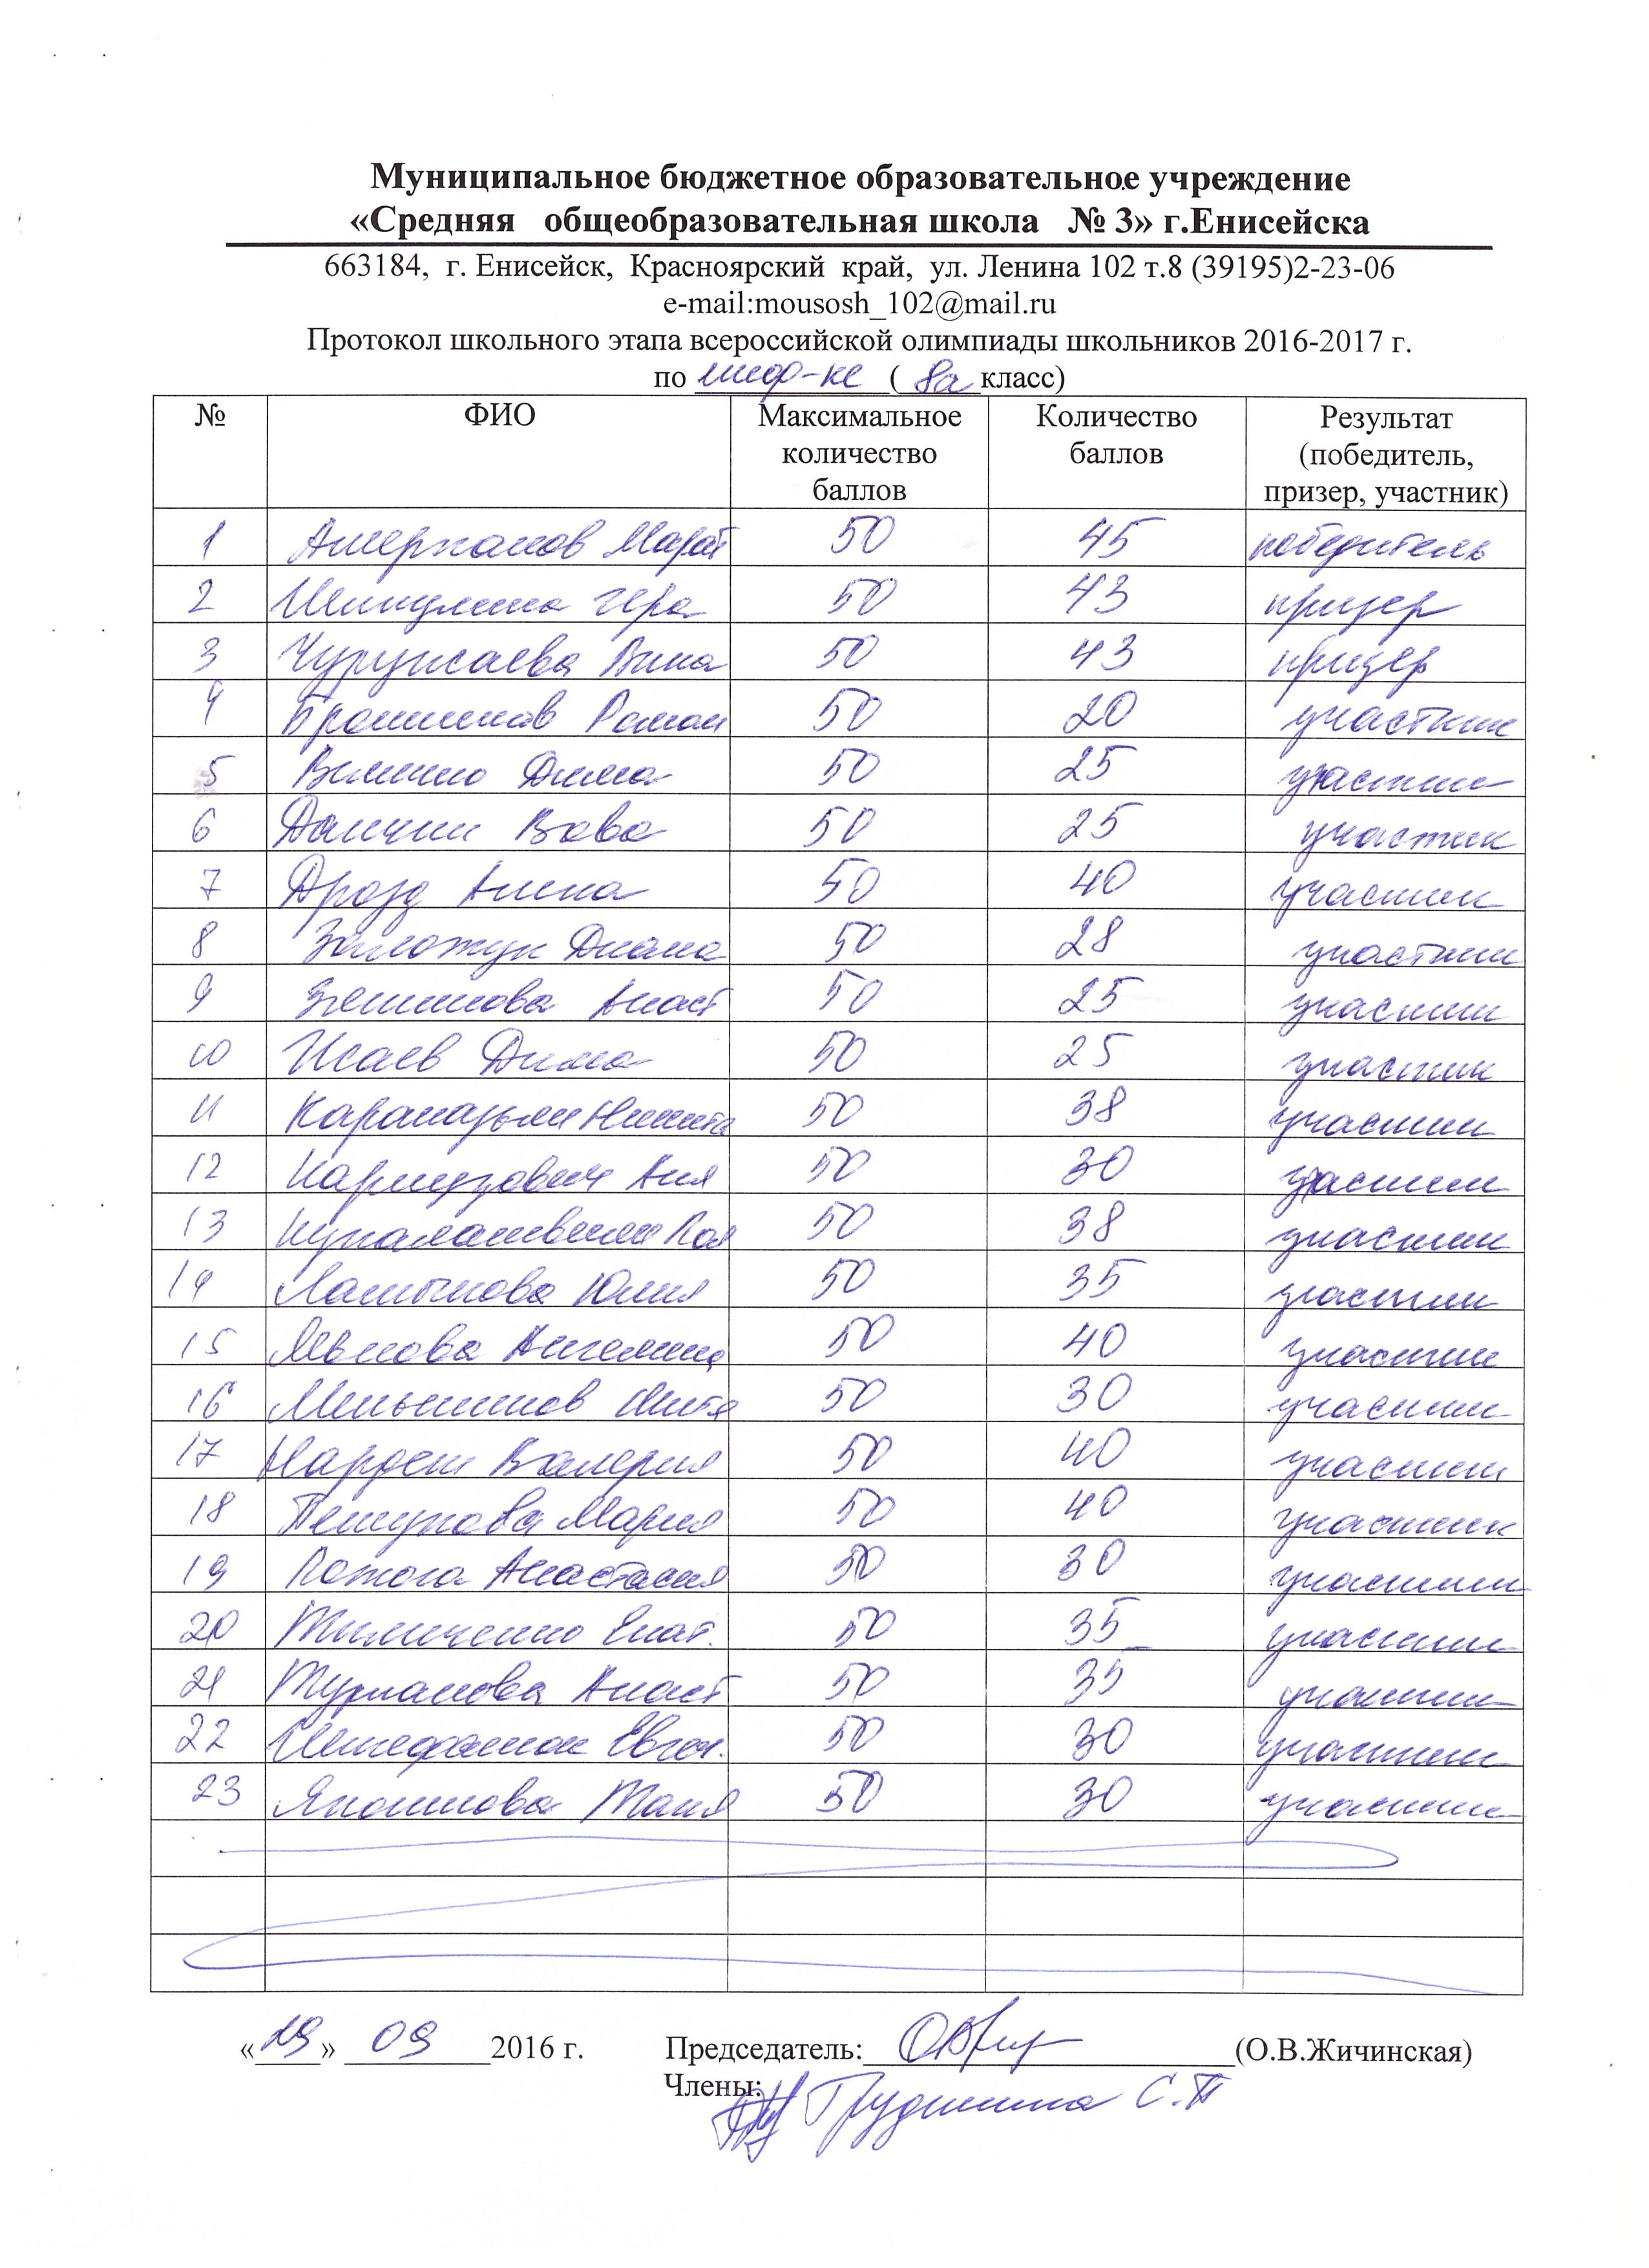 Муниципальное бюджетное образовательное учреждение
«Средняя общеобразовательная школа № 3» г.Енисейска
663184, г. Енисейск, Красноярский край, ул. Ленина 102 т.8 (39195)2-23-06
e-mail:mousosh_102@mail.ru
Протокол школьного этапа всероссийской олимпиады школьников 2016-2017 г.
по инф-ке (8а класс)
№ ФИО Максимальное количество баллов Количество баллов Результат (победитель, призер, участник)
1 Амерханов Марат 50 45 победитель
2 Гера 50 43 призер
3 50 43 призер
4 Роман 50 20 участник
5 Дима 50 25 участник
6 Вова 50 25 участник
7 Дрозд Алина 50 40 участник
8 Диана 50 28 участник
9 Анаст 50 25 участник
10 Исаев Дима 50 25 участник
11 Никита 50 38 участник
12 Аня 50 30 участник
13 50 38 участник
14 Юлия 50 35 участник
15 Львова Ангелина 50 40 участник
16 Меньшиков Митя 50 30 участник
17 Валерия 50 40 участник
18 Мария 50 40 участник
19 Анастасия 50 30 участник
20 Тимченко Екат. 50 35 участник
21 Анаст 50 35 участник
22 Евген. 50 30 участник
23 Таня 50 30 участник
«29» 09 2016 г. Председатель: (О.В.Жичинская)
Члены: С.П